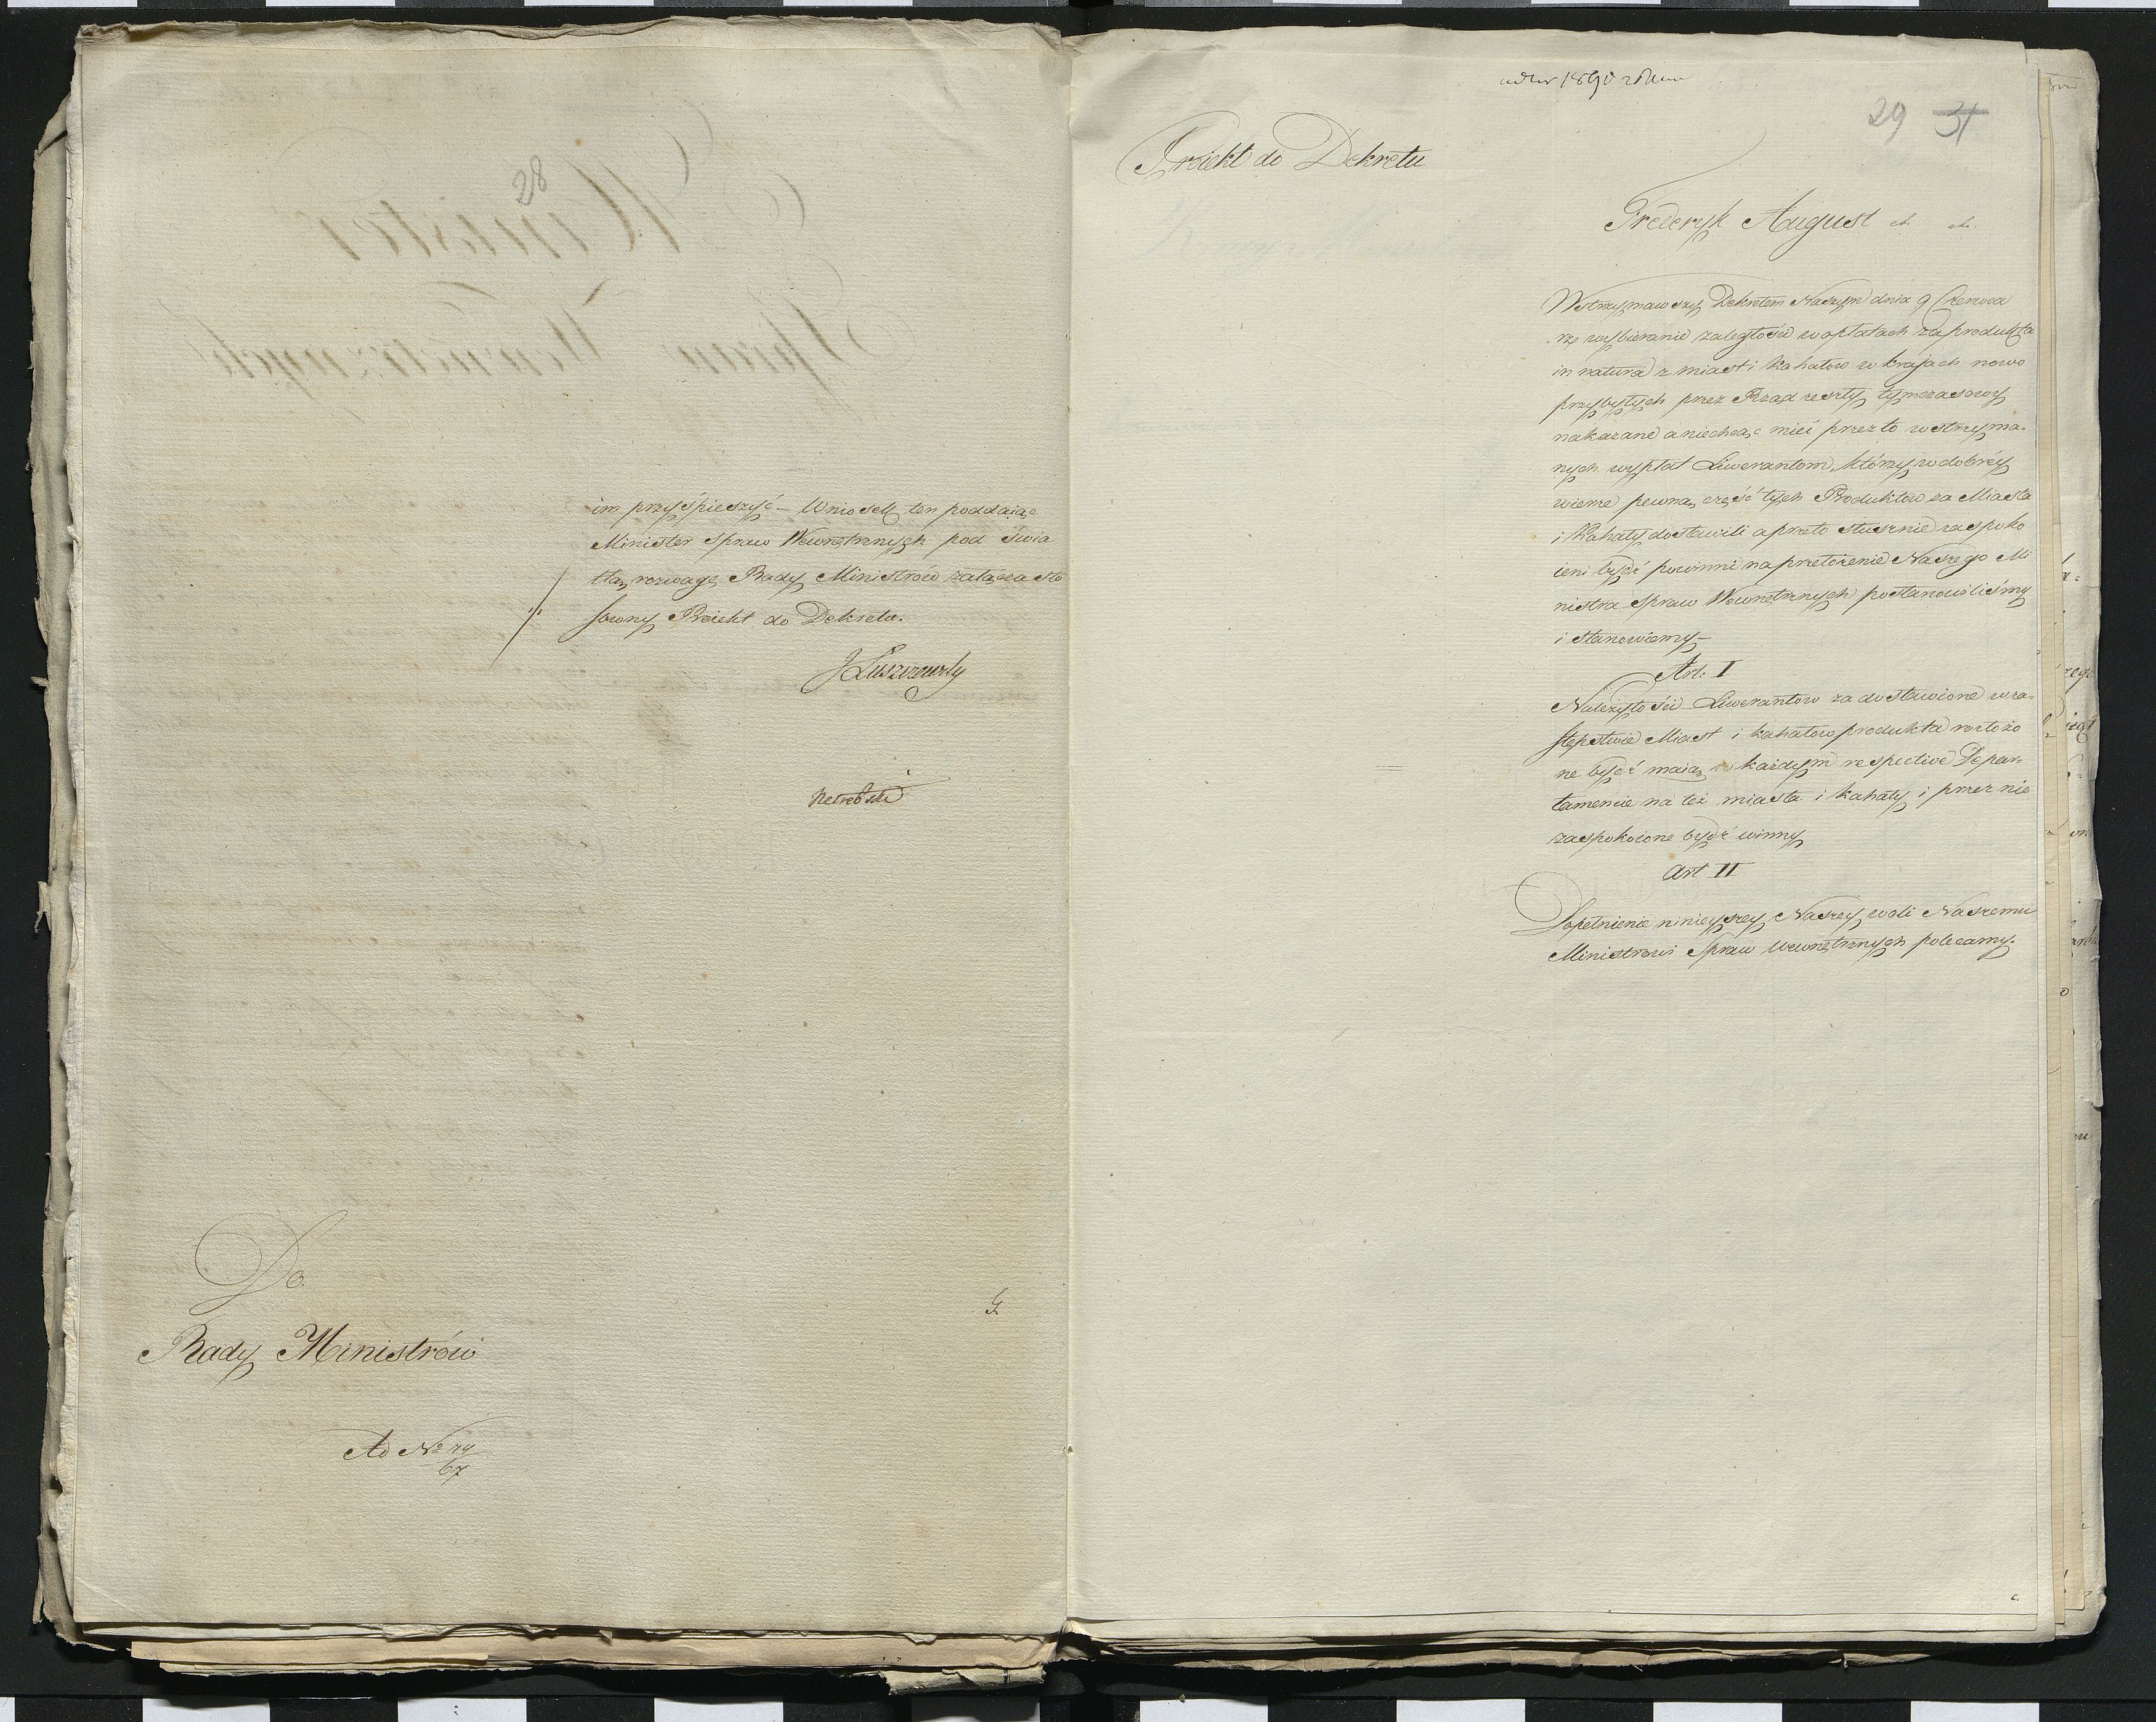 28
im przyśpieszyć – Wniosek ten poddaiąc
Minister Spraw Wewnętrznych pod świa
tłą rozwagę Rady Ministrów załącza sto
sowny Proiekt do Dekretu.
JŁuszczewsky
Do
Rady Ministrów
Ad No
67
29 31
Proiekt do Dekretu
Frederyk August etc. etc.
Wstrzymawszy Dekretem Naszym dnia 9 Czerwca
rz wybieranie zaległości w opłatach za produkta
in natura z miast i kahałow w krajach nowo
przybyłych przez Rząd reszty tymczasowy
nakazane a niechcąc mieć przez to wstrzyma-
nych wypłat Liwerantom, którzy w dobréy
wierze pewną część tych Produktow za Miasta
i Kahały dostawili a przeto słusznie zaspoko
ieni bydź powinni na przełożenie Naszego Mi
nistra Spraw Wewnętrznych postanowiliśmy
i stanowiemy –
Art: I
Należytości Liwerantow za dostawione w za-
stępstwie Miast i kahałow produkta rozłożo
ne bydź maią w każdym respective Depar-
tamencie na też miasta i kahały i przez nie
zaspokoione bydź winny
Art II
Dopełnienie ninieyszey Naszey woli Naszemu
Ministrowi Spraw Wewnętrznych polecamy.